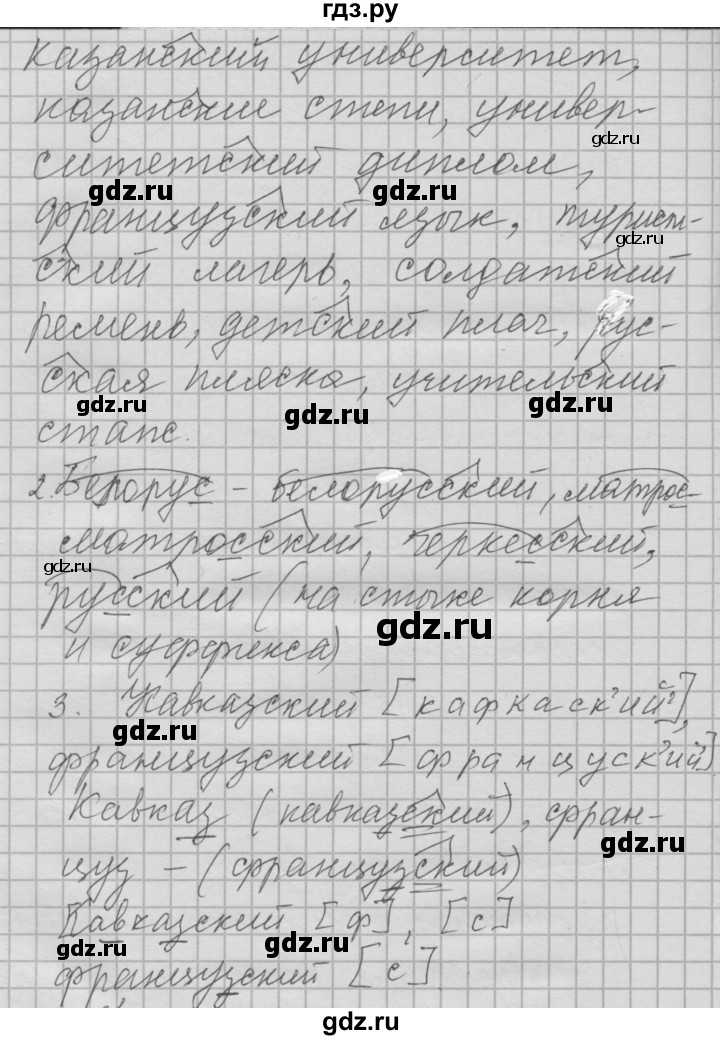 гдз.ру
казанский университет,
казанские степи, универ-
gdz.ru
ситетский диплом,
gdz.ru gdz.ru
французский язык, турист-
gdz.ru
ский лагерь, солдатский
gdz.ru
ремень, детский плач, рус-
ская пляска, учительский
gdz.ru gdz.ru gdz.ru
стаж.
2. Белорус - белорусский, матрос-
gdz.ru
матросский, черкесский,
gdz.ru
русский (на стыке корня
gdz.ru
и суффикса)
3. Кавказский [кафкаск'ий'],
с
gdz.ru
французский [француск'ий']
Кавказ (кавказский), фран-
gdz.ru
цуз - (французский)
gdz.ru
Кавказский [ф], [с]
gdz.ru gdz.ru
французский [с]
gdz.ru
gdz.ru